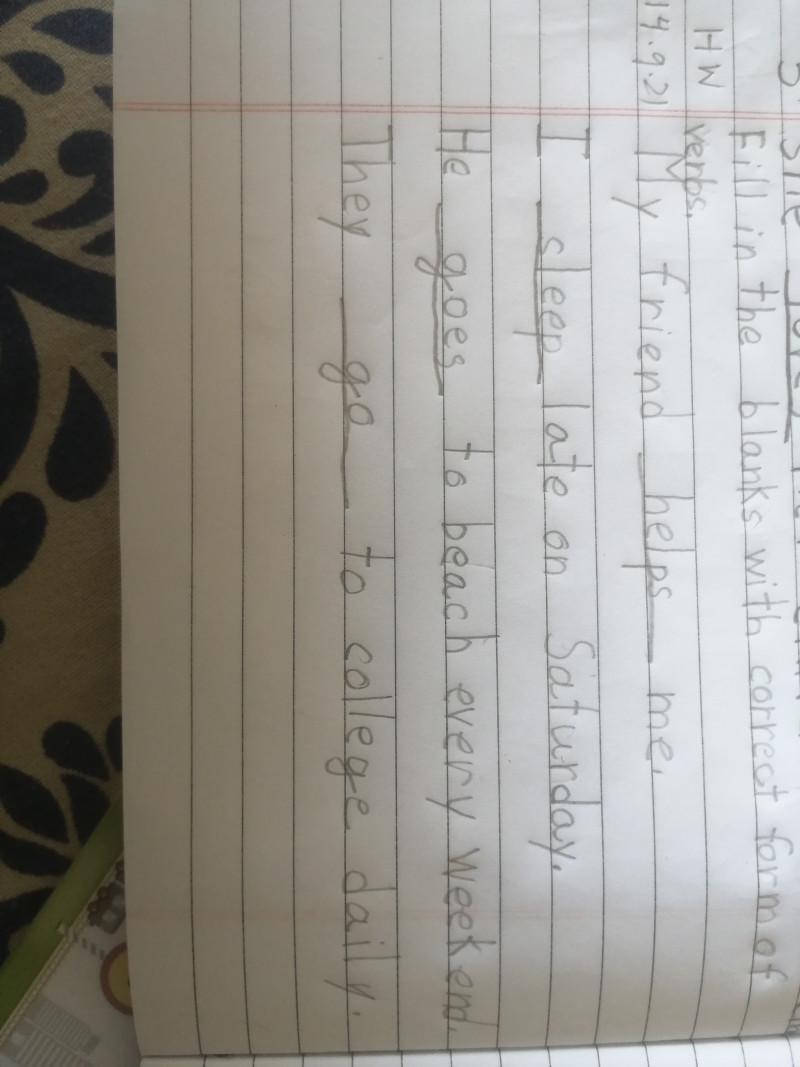 5. She loves
Fill in the blanks with correct form of
HW verbs.
14.9.21 My friend helps me.
I sleep late on Saturday.
He goes to beach every weekend.
They go to college daily.